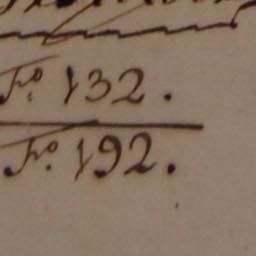 Fº. 132.
Fº. 192.